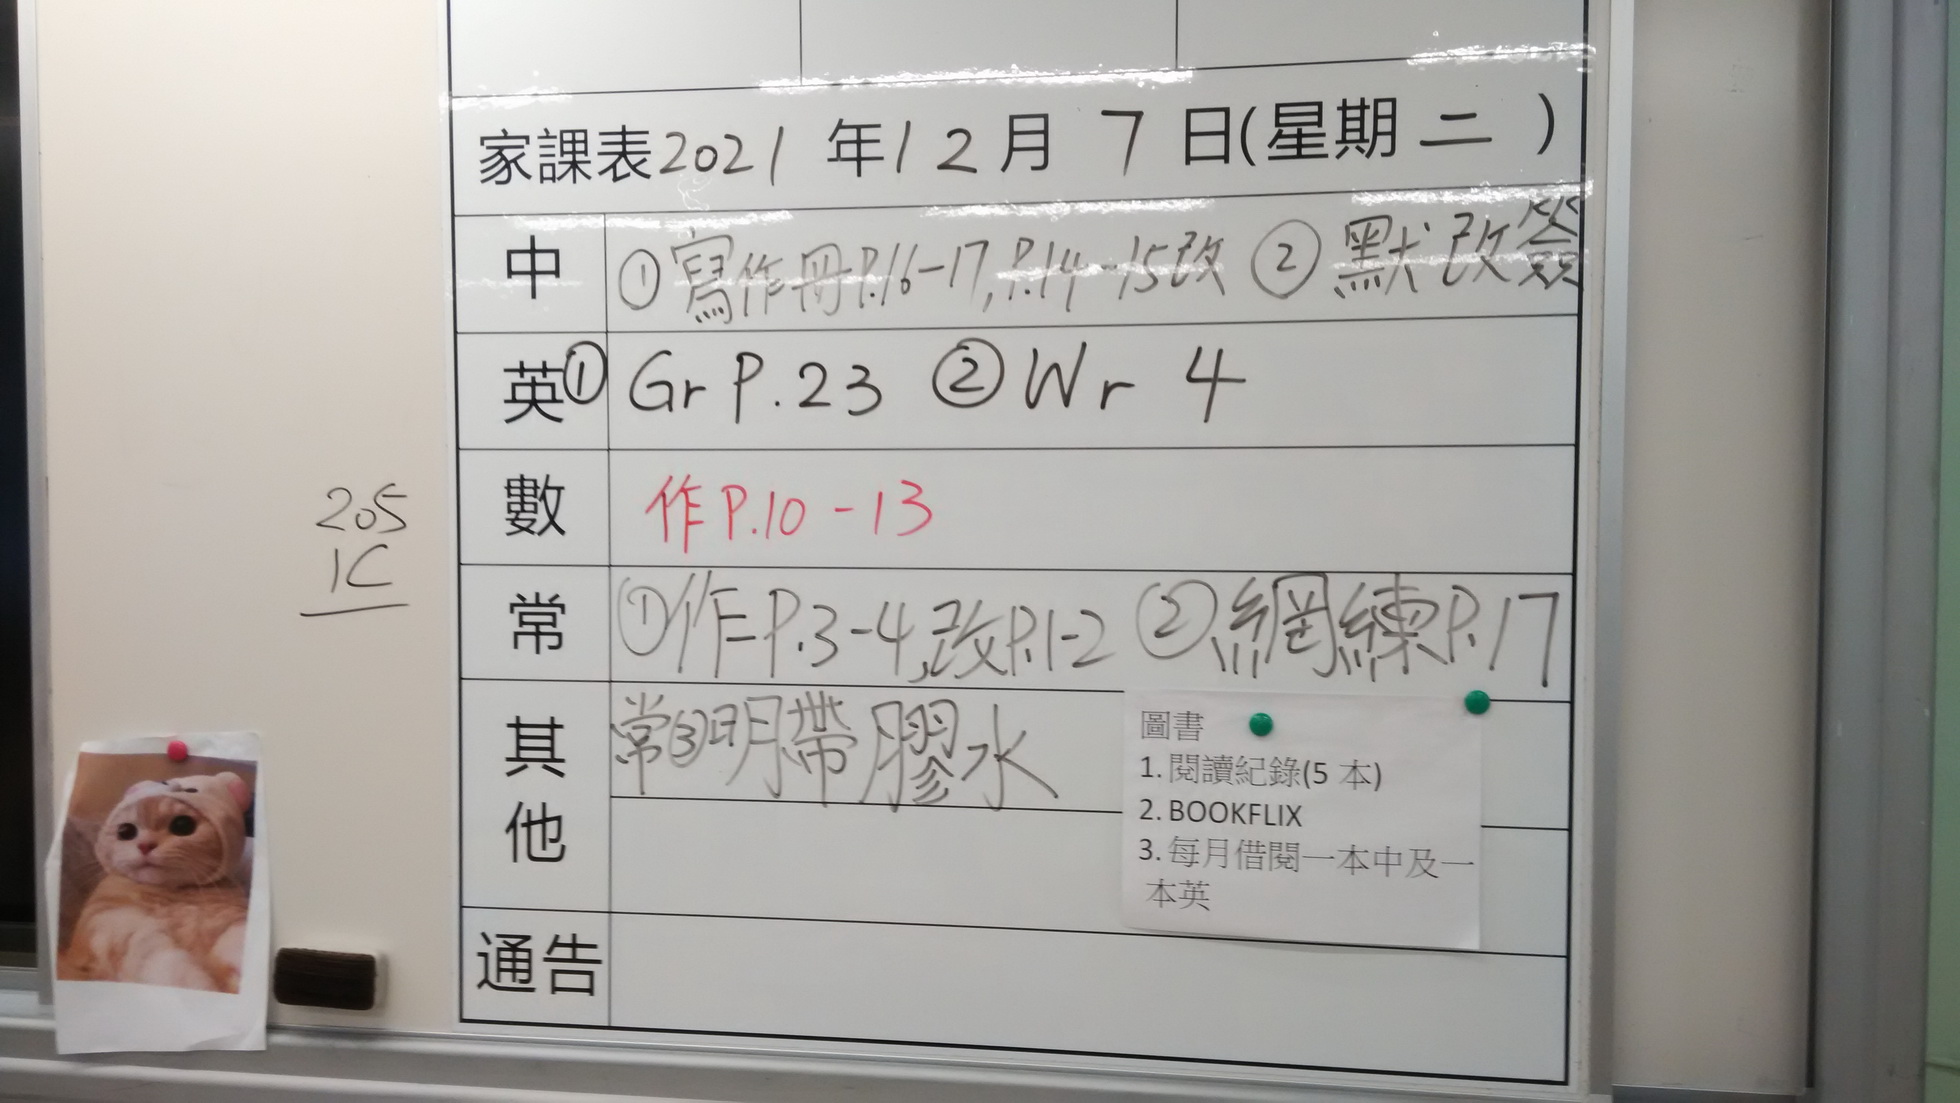 家課表2021年12月7日(星期二)
中 ①寫作冊P.16-17,P.14-15改 ②默改簽
英 ①Gr P.23 ②Wr 4
數 作P.10-13
常 ①作P.3-4,改P.1-2 ②網練P.17
其他 常③明帶膠水
圖書
1. 閱讀紀錄(5 本)
2. BOOKFLIX
3. 每月借閱一本中及一
本英
通告
205
1C